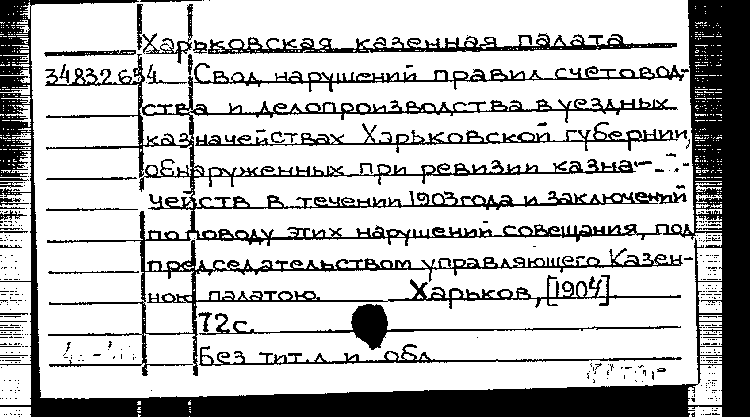 Харьковская казенная палата
34832.634. Свод нарушений правил счетовод-
ства и делопроизводства в уездных
казначействах Харьковской губернии,
обнаруженных при ревизии казна-
чейств в течении 1903 года и заключений
по поводу этих нарушений совещания, под
председательством управляющего Казен-
ною палатою. Харьков, [1904]
72 с.
Без тит. л и обл